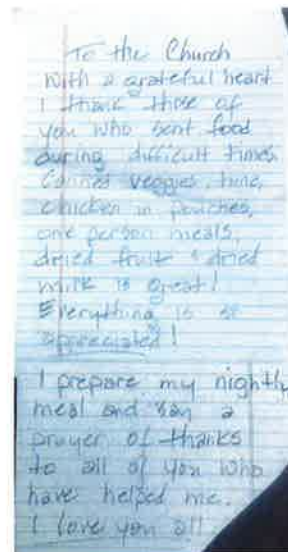 To the Church
With a grateful heart
I thank those of
you who sent food
during difficult times.
Canned veggies, tuna,
chicken in pouches,
one person meals,
dried fruit & dried
milk is great!
Everything is so
appreciated!
I prepare my nightly
meal and say a
prayer of thanks
to all of you who
have helped me.
I love you all